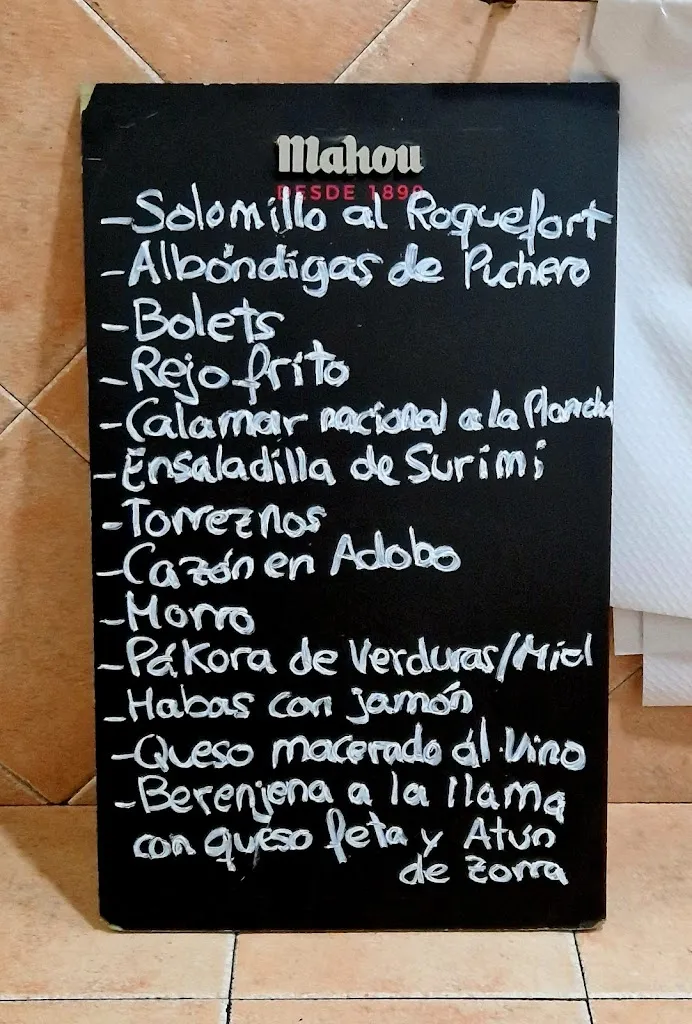 Mahou
DESDE 1890
- Solomillo al Roquefort
- Albóndigas de Puchero
- Bolets
- Rejo frito
- Calamar nacional a la Plancha
- Ensaladilla de Surimi
- Torreznos
- Cazón en Adobo
- Morro
- Pákora de Verduras/Miel
- Habas con jamón
- Queso macerado al Vino
- Berenjena a la llama
con queso feta y Atún
de Zorra